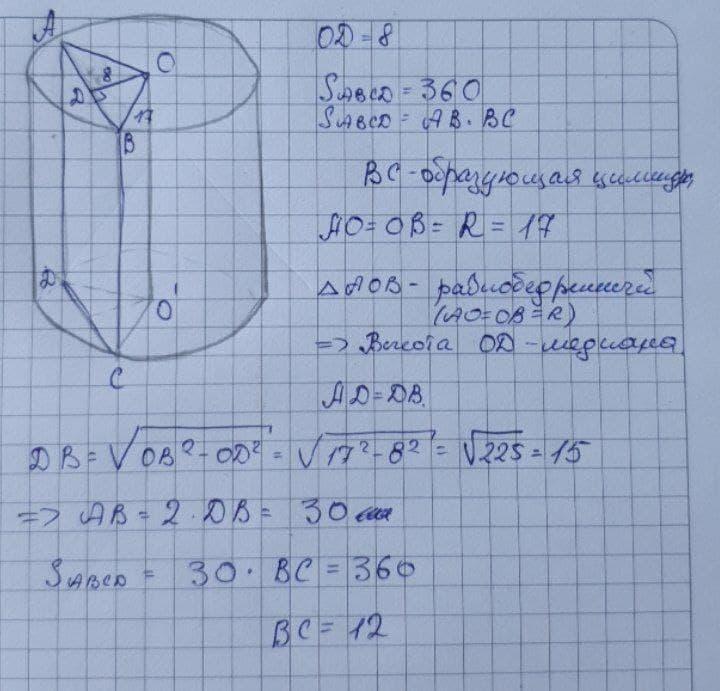 A
O
8
D
17
B
D
O'
C
OD = 8
SABCD = 360
SABCD = AB · BC
BC - образующая цилиндра
AO = OB = R = 17
△AOB - равнобедренный
(AO = OB = R)
=> Высота OD - медиана
AD = DB.
DB = √OB² - OD² = √17² - 8² = √225 = 15
=> AB = 2 · DB = 30 см
SABCD = 30 · BC = 360
BC = 12